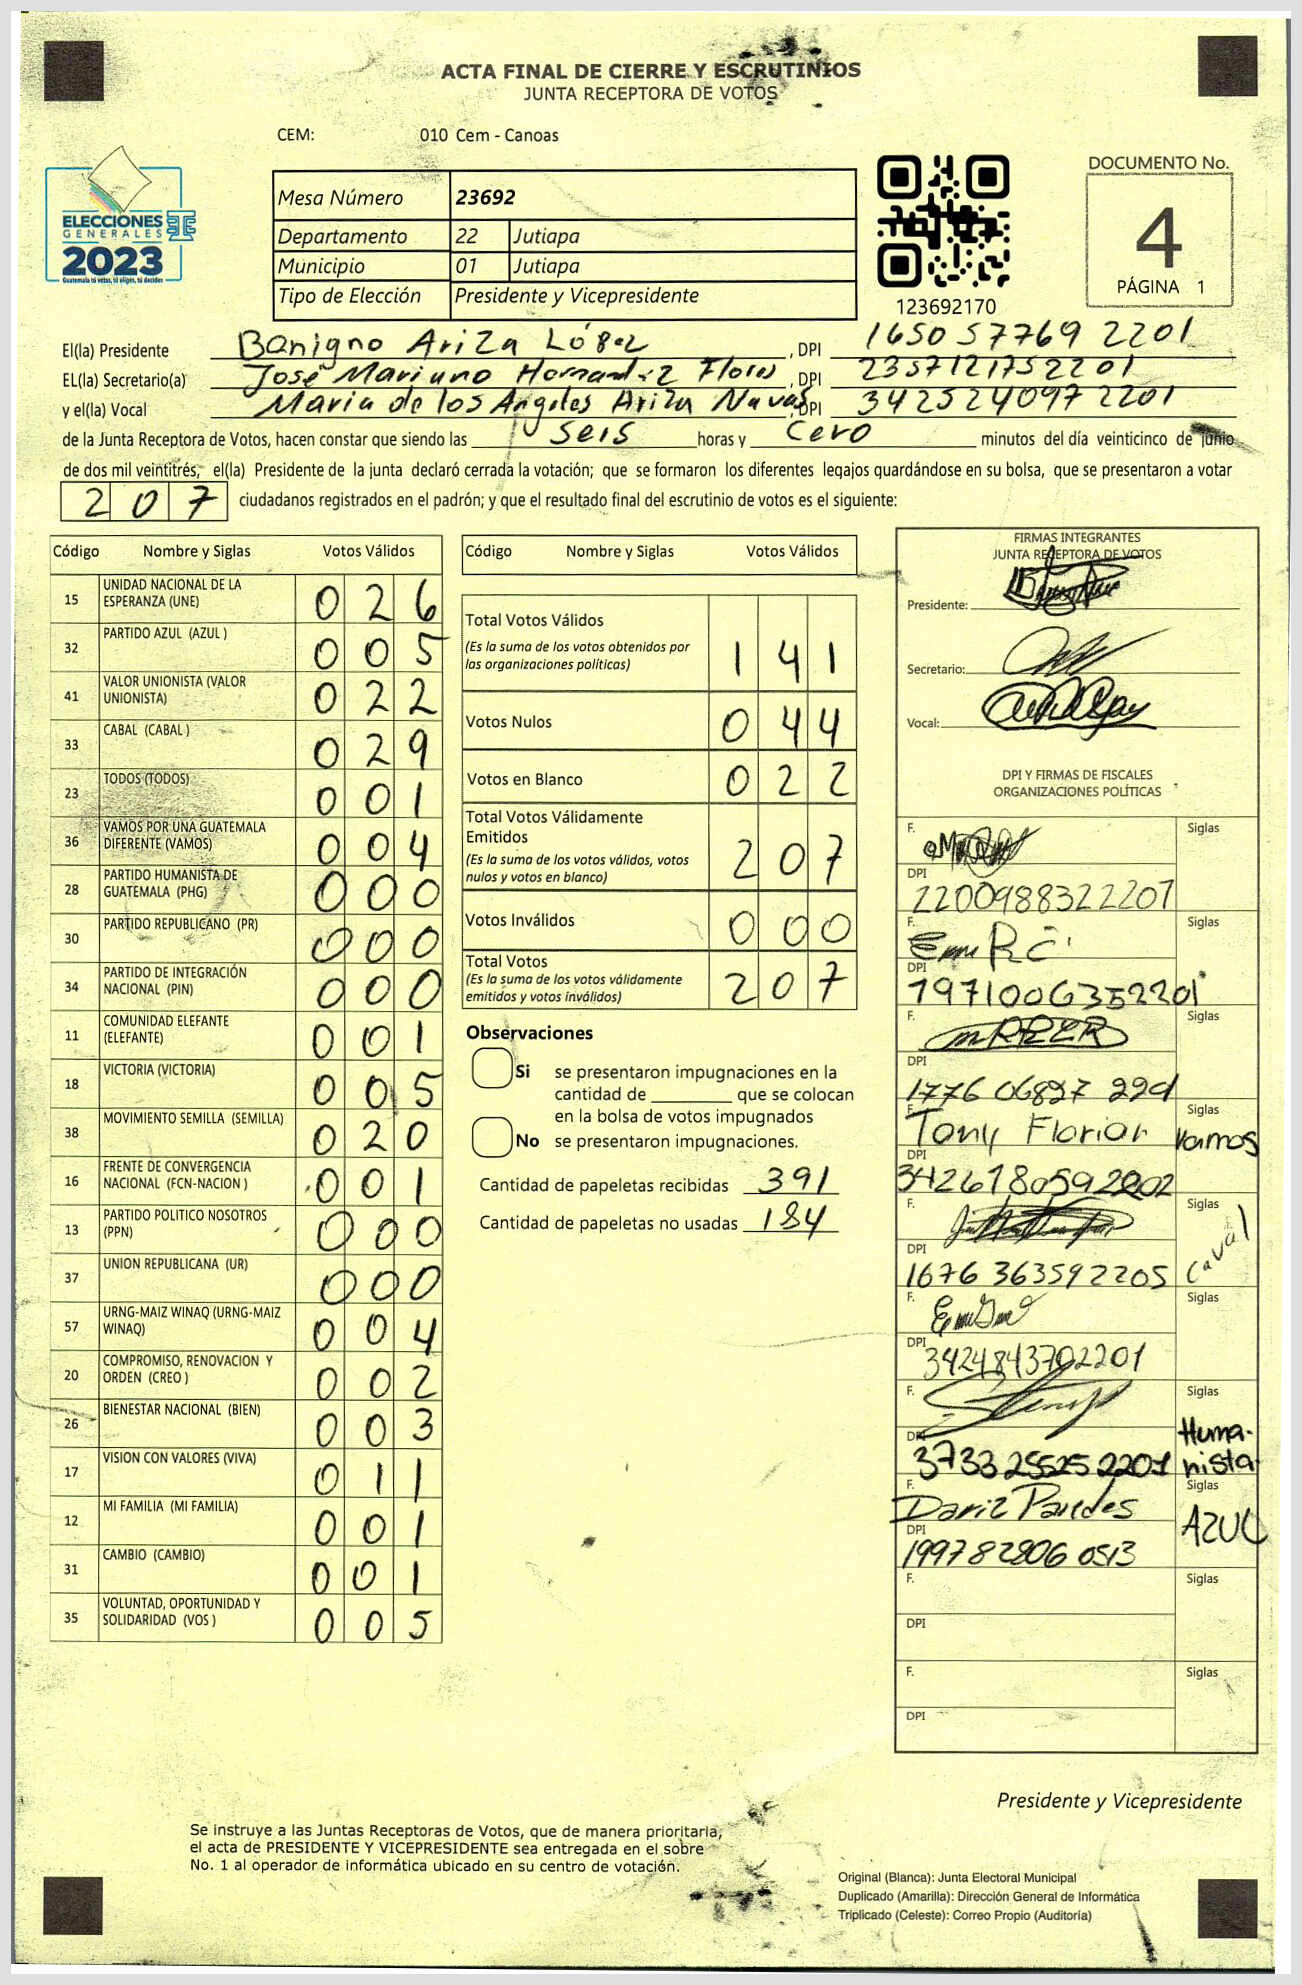 ACTA FINAL DE CIERRE Y ESCRUTINIOS
JUNTA RECEPTORA DE VOTOS
CEM: 010 Cem - Canoas
ELECCIONES
GENERALES
2023
Guatemala tú votas, tú eliges, tú decides
Mesa Número 23692
Departamento 22 Jutiapa
Municipio 01 Jutiapa
Tipo de Elección Presidente y Vicepresidente
123692170
DOCUMENTO No.
4
PÁGINA 1
El(la) Presidente Benigno Ariza López, DPI 1650 57769 2201
EL(la) Secretario(a) José Mariano Hernandez Flores, DPI 2357121752201
y el(la) Vocal Maria de los Angeles Ariza Navas, DPI 3425240972201
de la Junta Receptora de Votos, hacen constar que siendo las seis horas y cero minutos del día veinticinco de junio
de dos mil veintitrés, el(la) Presidente de la junta declaró cerrada la votación; que se formaron los diferentes legajos quardándose en su bolsa, que se presentaron a votar
207 ciudadanos registrados en el padrón; y que el resultado final del escrutinio de votos es el siguiente:
Código Nombre y Siglas Votos Válidos
15 UNIDAD NACIONAL DE LA ESPERANZA (UNE) 026
32 PARTIDO AZUL (AZUL ) 005
41 VALOR UNIONISTA (VALOR UNIONISTA) 022
33 CABAL (CABAL ) 029
23 TODOS (TODOS) 001
36 VAMOS POR UNA GUATEMALA DIFERENTE (VAMOS) 004
28 PARTIDO HUMANISTA DE GUATEMALA (PHG) 000
30 PARTIDO REPUBLICANO (PR) 000
34 PARTIDO DE INTEGRACIÓN NACIONAL (PIN) 000
11 COMUNIDAD ELEFANTE (ELEFANTE) 001
18 VICTORIA (VICTORIA) 005
38 MOVIMIENTO SEMILLA (SEMILLA) 020
16 FRENTE DE CONVERGENCIA NACIONAL (FCN-NACION ) 001
13 PARTIDO POLITICO NOSOTROS (PPN) 000
37 UNION REPUBLICANA (UR) 000
57 URNG-MAIZ WINAQ (URNG-MAIZ WINAQ) 004
20 COMPROMISO, RENOVACION Y ORDEN (CREO ) 002
26 BIENESTAR NACIONAL (BIEN) 003
17 VISION CON VALORES (VIVA) 011
12 MI FAMILIA (MI FAMILIA) 001
31 CAMBIO (CAMBIO) 001
35 VOLUNTAD, OPORTUNIDAD Y SOLIDARIDAD (VOS ) 005
Código Nombre y Siglas Votos Válidos
Total Votos Válidos 141
(Es la suma de los votos obtenidos por
las organizaciones políticas)
Votos Nulos 044
Votos en Blanco 022
Total Votos Válidamente
Emitidos 207
(Es la suma de los votos válidos, votos
nulos y votos en blanco)
Votos Inválidos 000
Total Votos 207
(Es la suma de los votos válidamente
emitidos y votos inválidos)
Observaciones
Si se presentaron impugnaciones en la
cantidad de ________ que se colocan
en la bolsa de votos impugnados
No se presentaron impugnaciones.
Cantidad de papeletas recibidas 391
Cantidad de papeletas no usadas 184
FIRMAS INTEGRANTES
JUNTA RECEPTORA DE VOTOS
Presidente:
Secretario:
Vocal:
DPI Y FIRMAS DE FISCALES
ORGANIZACIONES POLÍTICAS
F. Siglas
DPI 2200988322207
F. Siglas
DPI 1971006352201
F. Siglas
DPI
F. Tony Florian Siglas Vamos
DPI
F. Siglas Caval
DPI 1676 363592205
F. Siglas
DPI 3424843702201
F. Siglas Humanista
DPI 3733 25525 2201
F. Siglas AZUL
DPI 1997 82806 0513
F. Siglas
DPI
F. Siglas
DPI
Presidente y Vicepresidente
Se instruye a las Juntas Receptoras de Votos, que de manera prioritaria,
el acta de PRESIDENTE Y VICEPRESIDENTE sea entregada en el sobre
No. 1 al operador de informática ubicado en su centro de votación.
Original (Blanca): Junta Electoral Municipal
Duplicado (Amarilla): Dirección General de Informática
Triplicado (Celeste): Correo Propio (Auditoría)